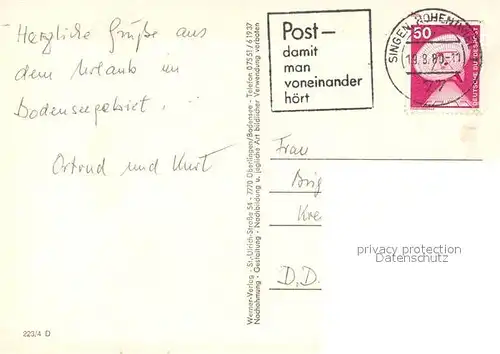 Herzliche Grüße aus
dem Urlaub im
Bodenseegebiet.
Ortrud und Kurt
Werner-Verlag · St.-Ulrich-Straße 54 · 7770 Überlingen/Bodensee · Telefon 07551/61937
Nachahmung · Gestaltung · Nachbildung u. jegliche Art bildlicher Verwendung verboten
223/4 D
Post—
damit
man
voneinander
hört
SINGEN, HOHENTWIEL
19.8.80.-11
50
DEUTSCHE BUNDESPOST
Frau
Brig
Kre
D.D.
privacy protection
Datenschutz